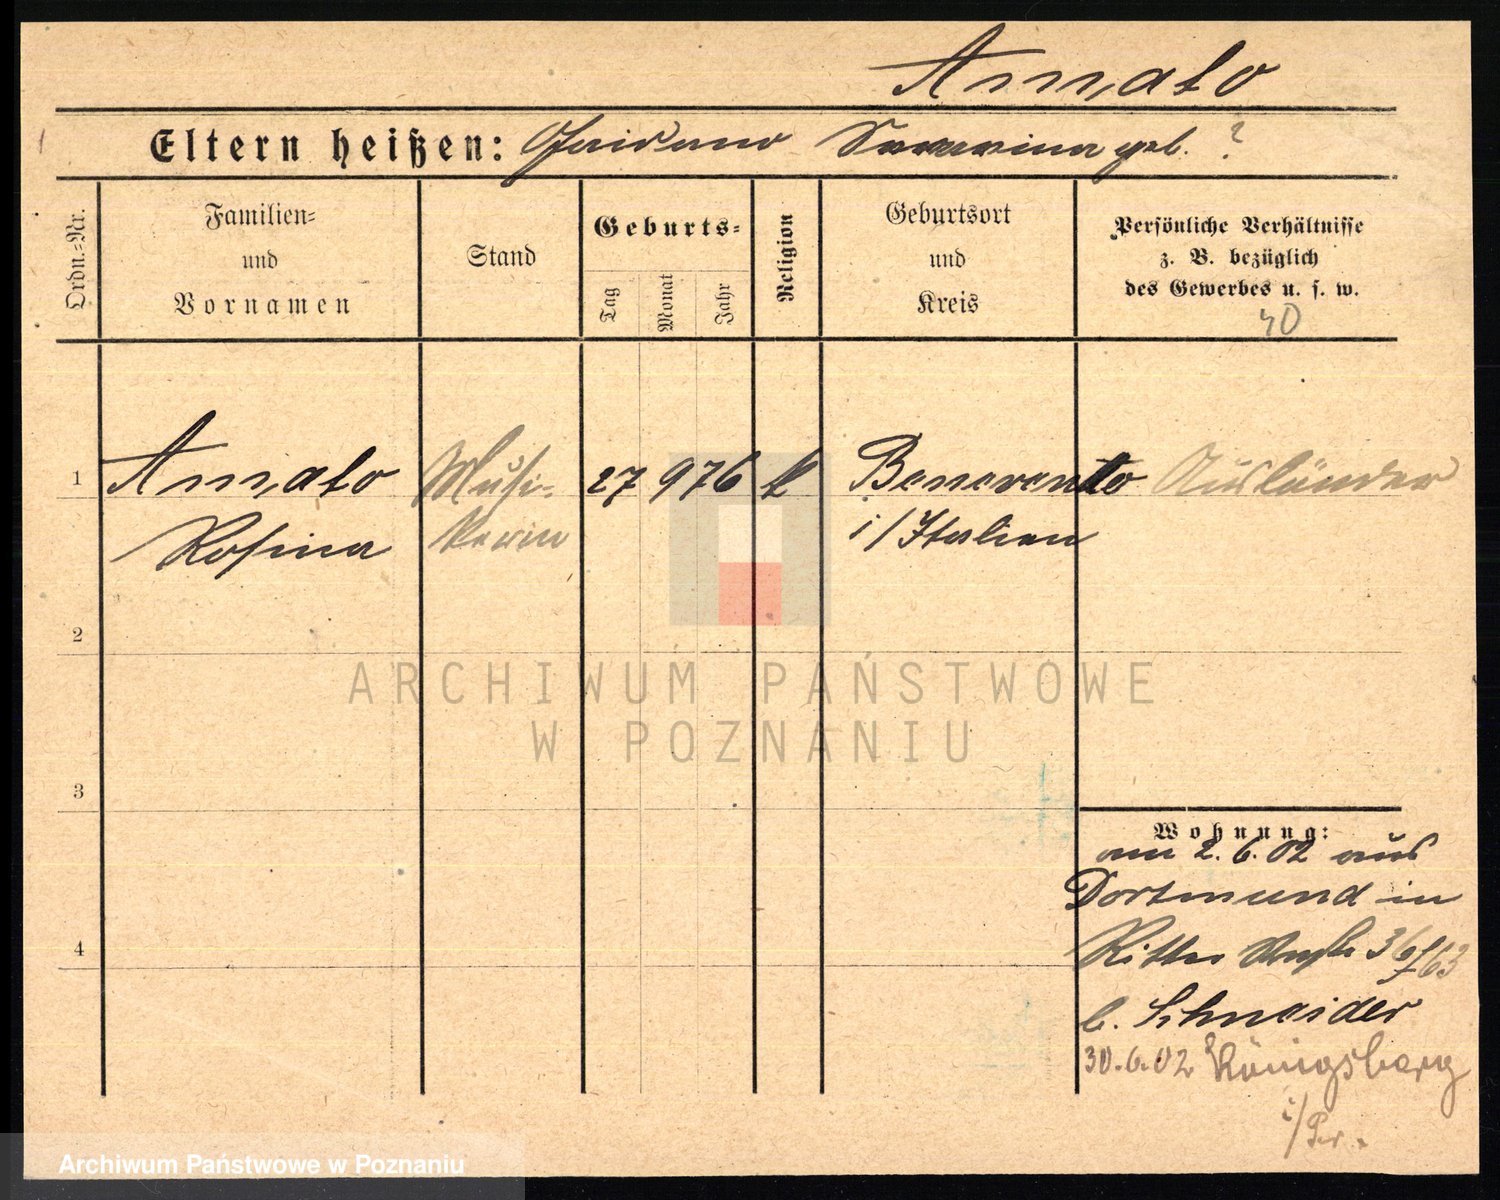 Amato
Eltern heißen: Severina geb. ?
Ordn.=Nr.
Familien=
und
Vornamen
Stand
Geburts=
Tag
Monat
Jahr
Religion
Geburtsort
und
Kreis
Persönliche Verhältnisse
z. B. bezüglich
des Gewerbes u. s. w.
40
1 Amato Musi- 27 9 76 k Benevento Ausländer
Rosina kerin i/Italien
2
ARCHIWUM PAŃSTWOWE
W POZNANIU
3
Wohnung:
am 2. 6. 02 aus
Dortmund in
4
Ritter 36/63
b. Schneider
30.6.02 Königsberg
i/Pr.
Archiwum Państwowe w Poznaniu